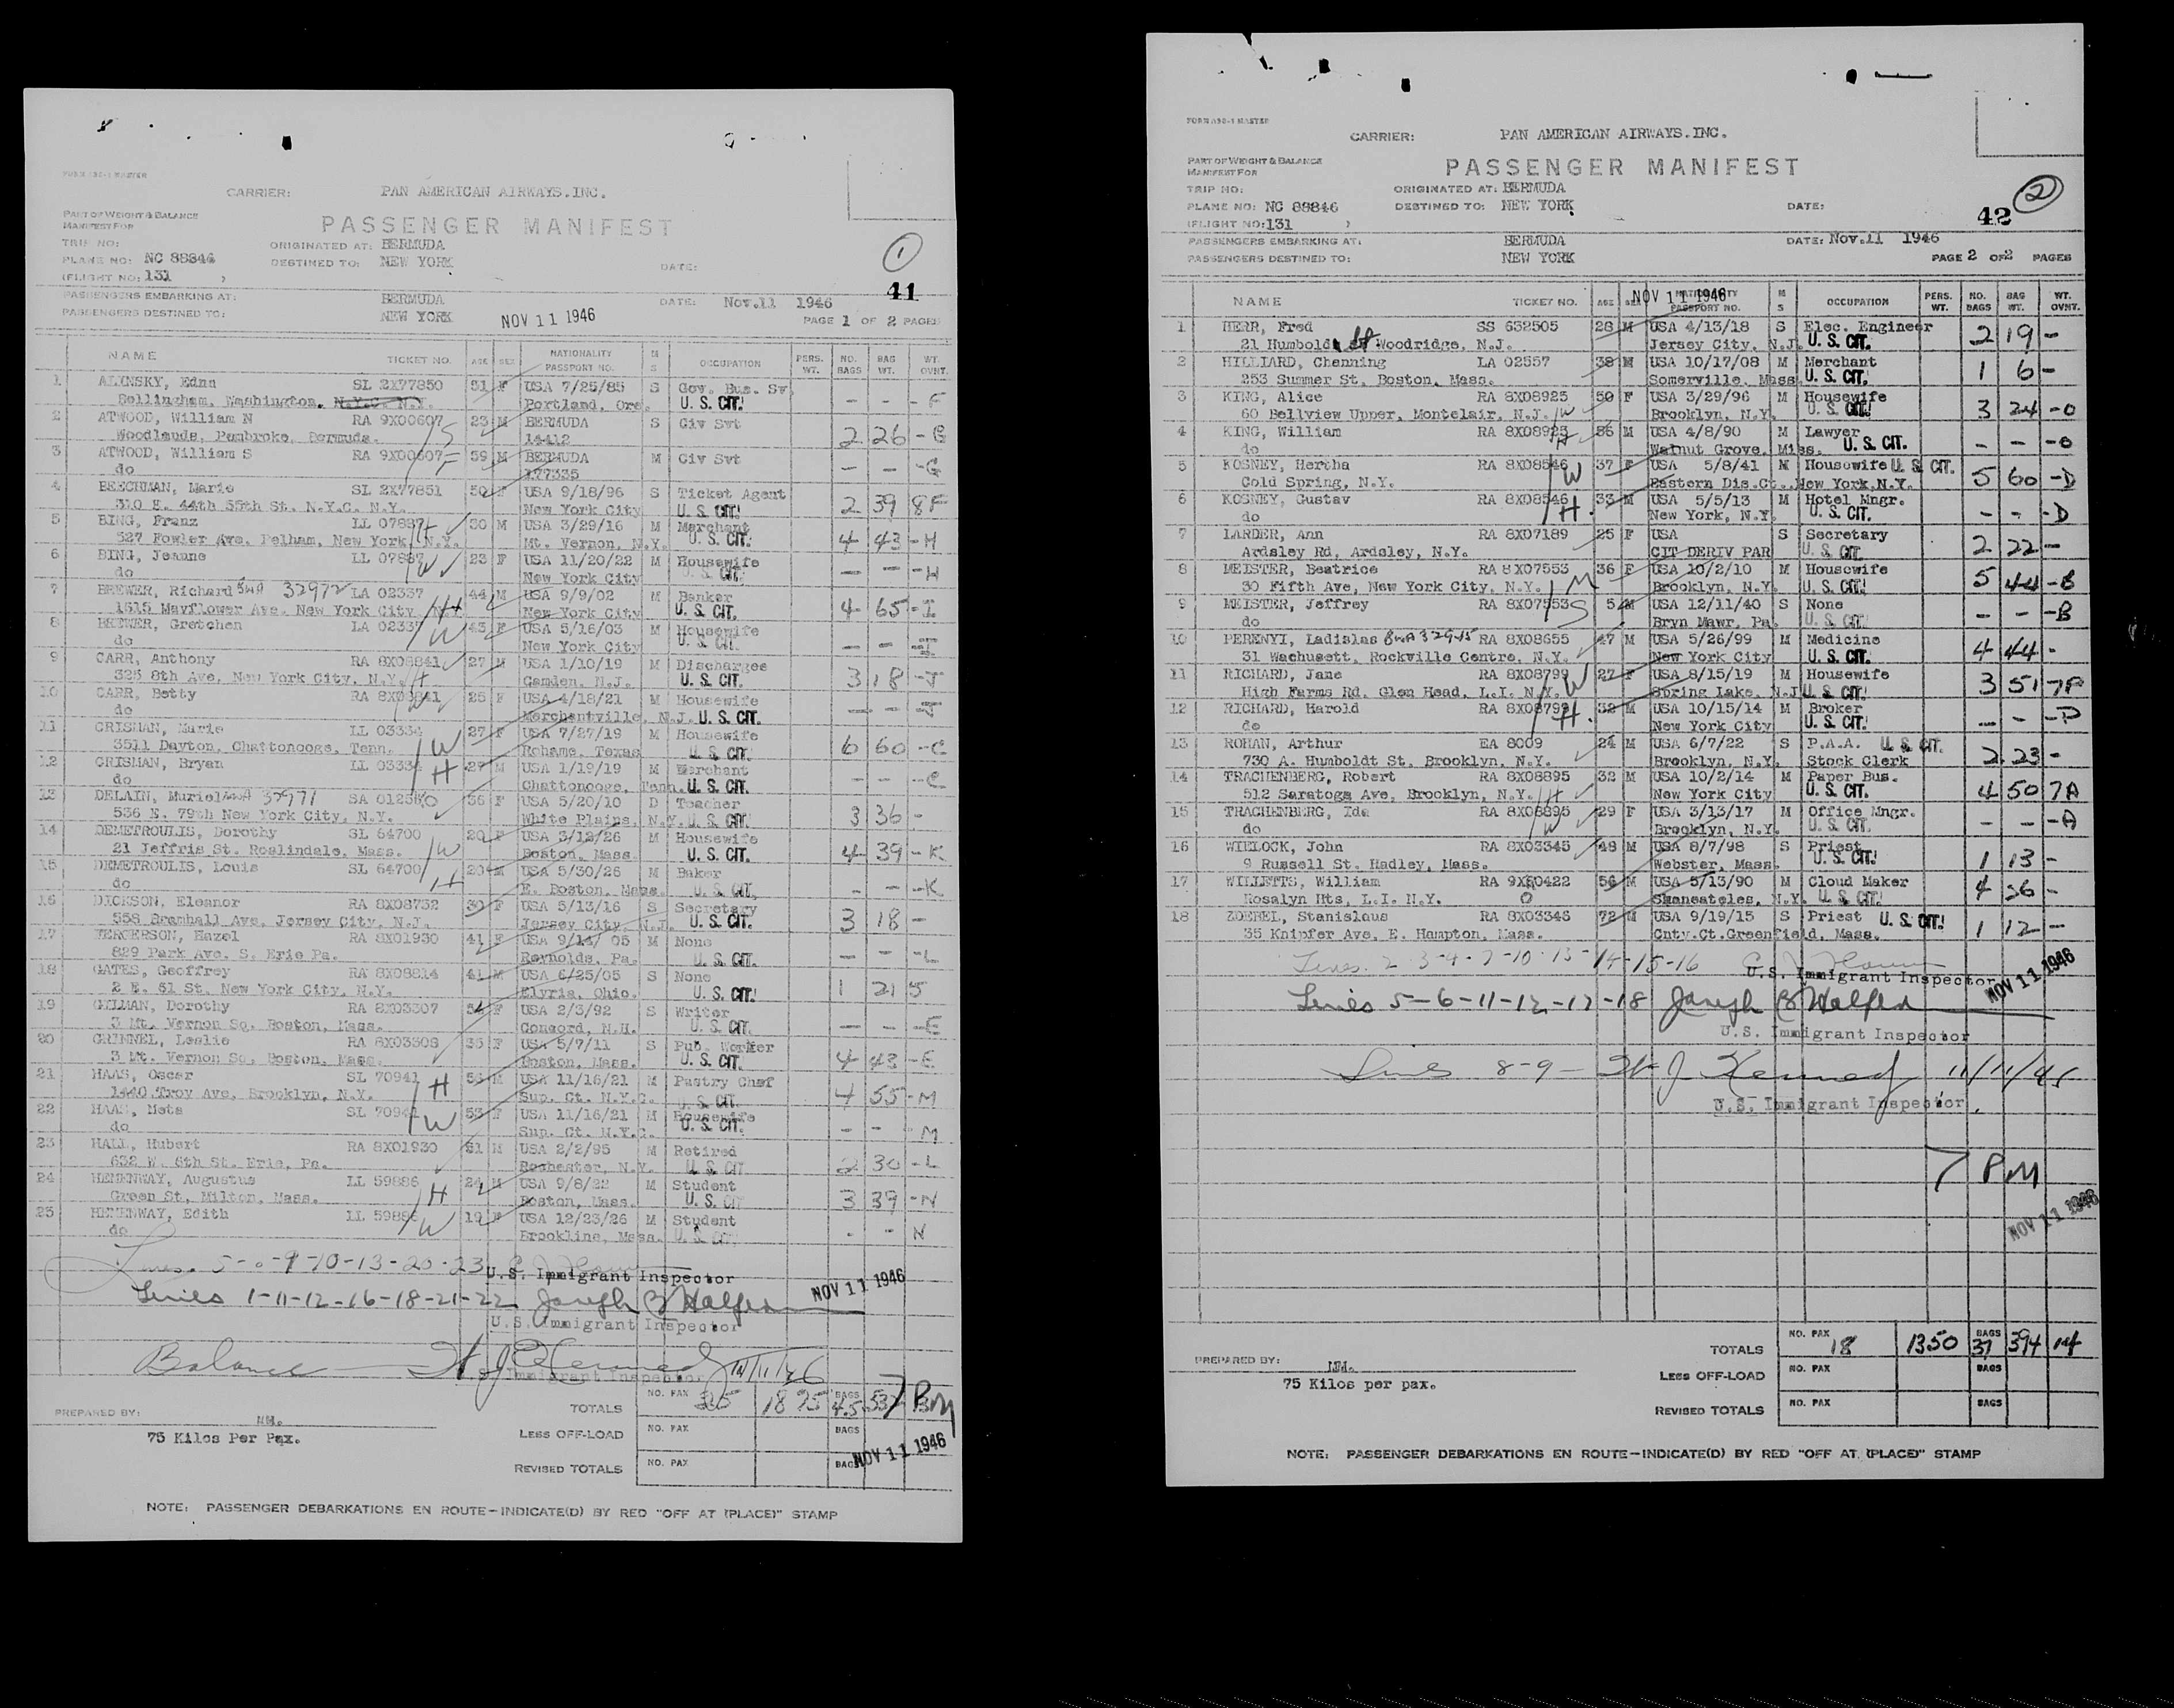 FORM A96-1 MASTER
CARRIER: PAN AMERICAN AIRWAYS.INC.
PART OF WEIGHT & BALANCE
MANIFEST FOR
PASSENGER MANIFEST
TRIP NO: ORIGINATED AT: BERMUDA
PLANE NO: NC 88846 DESTINED TO: NEW YORK DATE:
(FLIGHT NO: 131 )
1
41
PASSENGERS EMBARKING AT: BERMUDA DATE: Nov.11 1946
PASSENGERS DESTINED TO: NEW YORK NOV 11 1946 PAGE 1 OF 2 PAGES
NAME TICKET NO. AGE SEX NATIONALITY PASSPORT NO. M S OCCUPATION PERS. WT. NO. BAGS BAG WT. WT. OVNT.
1 ALINSKY, Edna SL 2X77850 51 F USA 7/25/85 S Gov. Bus. Sv. - - - F
Bellingham, Washington. N.Y.C. N.Y. Portland, Ore. U. S. CIT.
2 ATWOOD, William N RA 9X00607 23 M BERMUDA S Civ Svt 2 26 - G
Woodlands, Pembroke, Bermuda. /S 14412
3 ATWOOD, William S RA 9X00607 59 M BERMUDA M Civ Svt - - - G
do /F 177335
4 BEECHMAN, Marie SL 2X77851 50 F USA 9/18/96 S Ticket Agent 2 39 8F
310 E. 44th 55th St. N.Y.C. N.Y. New York City U. S. CIT.
5 BING, Franz LL 07887 H 30 M USA 3/29/16 M Merchant 4 43 - H
527 Fowler Ave. Pelham, New York, N.Y. Mt. Vernon, N.Y. U. S. CIT.
6 BING, Jeanne LL 07887 W 23 F USA 11/20/22 M Housewife - - - H
do New York City U. S. CIT.
7 BREWER, Richard BWA 32972 LA 02337 44 M USA 9/9/02 M Banker 4 65 - I
1615 Mayflower Ave. New York City N.Y. /H New York City U. S. CIT.
8 BREWER, Gretchen LA 02337 43 F USA 5/16/03 M Housewife - - - I
do /W New York City U. S. CIT.
9 CARR, Anthony RA 8X08841 27 M USA 1/10/19 M Dischargee 3 18 - J
325 8th Ave, New York City, N.Y. /H Camden, N.J. U. S. CIT.
10 CARR, Betty RA 8X08841 25 F USA 4/18/21 M Housewife - - - J
do /W Merchantville, N.J. U. S. CIT.
11 CRISMAN, Marie LL 03334 27 F USA 7/27/19 M Housewife 6 60 - C
3511 Dayton, Chattonooga, Tenn. /W Rehame, Texas U. S. CIT.
12 CRISMAN, Bryan LL 03334 27 M USA 1/19/19 M Merchant - - - C
do /H Chattonooga, Tenn. U. S. CIT.
13 DELAIN, Muriel BWA 32971 SA 012580 36 F USA 5/20/10 D Teacher 3 36 -
536 E. 79th New York City, N.Y. White Plains, N.Y. U. S. CIT.
14 DEMETROULIS, Dorothy SL 64700 20 F USA 3/12/26 M Housewife 4 39 - K
21 Jeffris St. Roslindale, Mass. /W Boston, Mass. U. S. CIT.
15 DEMETROULIS, Louis SL 64700 20 M USA 5/30/26 M Baker - - - K
do /H E. Boston, Mass. U. S. CIT.
16 DICKSON, Eleanor RA 8X08732 30 F USA 5/13/16 S Secretary 3 18 -
558 Bramhall Ave, Jersey City, N.J. Jersey City, N.J. U. S. CIT.
17 FERGERSON, Hazel RA 8X01930 41 F USA 9/14/ 05 M None - - - L
829 Park Ave. S. Erie Pa. Reynolds, Pa. U. S. CIT.
18 GATES, Geoffrey RA 8X08814 41 M USA 6/25/05 S None 1 21 5
2 E. 61 St. New York City, N.Y. Elyria, Ohio. U. S. CIT.
19 GILMAN, Dorothy RA 8X03307 54 F USA 2/3/92 S Writer - - - E
3 Mt. Vernon Sq. Boston, Mass. Concord, N.H. U. S. CIT.
20 GRINNEL, Leslie RA 8X03308 35 F USA 5/7/11 S Pub. Worker 4 43 - E
3 Mt. Vernon Sq, Boston, Mass. Boston, Mass. U. S. CIT.
21 HAAS, Oscar SL 70941 56 M USA 11/16/21 M Pastry Chef 4 55 - M
1440 Troy Ave, Brooklyn, N.Y. H Sup. Ct. N.Y.C. U. S. CIT.
22 HAAS, Meta SL 70941 55 F USA 11/16/21 M Housewife - - - M
do /W Sup. Ct. N.Y.C. U. S. CIT.
23 HALL, Hubert RA 8X01930 51 M USA 2/2/95 M Retired 2 30 - L
632 W. 6th St. Erie, Pa. Rochester, N.Y. U. S. CIT
24 HEMENWAY, Augustus LL 59886 24 M USA 9/8/22 M Student 3 39 - N
Green St, Milton, Mass. /H Boston, Mass. U. S. CIT
25 HEMENWAY, Edith LL 59886 19 F USA 12/23/26 M Student - - N
do /W Brookline, Mass. U. S. CIT.
Lines. 5-6-9-10-13-20-23
U.S. Immigrant Inspector
Lines 1-11-12-16-18-21-22 Joseph B Halfern NOV 11 1946
U.S. Immigrant Inspector
Balance H J Kennedy 11/11/46
U.S. Immigrant Inspector
TOTALS NO. PAX 25 1875 BAGS 45 537 7 PM
PREPARED BY: MM.
75 Kilos Per Pax.
LESS OFF-LOAD NO. PAX BAGS
NOV 11 1946
REVISED TOTALS NO. PAX BAGS
NOTE: PASSENGER DEBARKATIONS EN ROUTE—INDICATE(D) BY RED "OFF AT (PLACE)" STAMP
FORM A96-1 MASTER
CARRIER: PAN AMERICAN AIRWAYS.INC.
PART OF WEIGHT & BALANCE
MANIFEST FOR
PASSENGER MANIFEST
TRIP NO: ORIGINATED AT: BERMUDA
PLANE NO: NC 88846 DESTINED TO: NEW YORK DATE:
(FLIGHT NO: 131 )
42
2
PASSENGERS EMBARKING AT: BERMUDA DATE: Nov.11 1946
PASSENGERS DESTINED TO: NEW YORK PAGE 2 OF 2 PAGES
NOV 11 1946
NAME TICKET NO. AGE SEX NATIONALITY PASSPORT NO. M S OCCUPATION PERS. WT. NO. BAGS BAG WT. WT. OVNT.
1 HERR, Fred SS 632505 28 M USA 4/13/18 S Elec. Engineer 2 19 -
21 Humboldt St Woodridge, N.J. Jersey City, N.J. U. S. CIT.
2 HILLIARD, Channing LA 02557 38 M USA 10/17/08 M Merchant 1 6 -
253 Summer St, Boston, Mass. Somerville, Mass. U. S. CIT.
3 KING, Alice RA 8X08925 50 F USA 3/29/96 M Housewife 3 24 - O
60 Bellview Upper, Montclair, N.J. /W Brooklyn, N.Y. U. S. CIT.
4 KING, William RA 8X08925 56 M USA 4/8/90 M Lawyer - - - O
do H Walnut Grove, Miss. U. S. CIT.
5 KOSNEY, Hertha RA 8X08546 37 F USA 5/8/41 M Housewife U. S. CIT. 5 60 - D
Cold Spring, N.Y. /W Eastern Dis.Ct., New York,N.Y.
6 KOSNEY, Gustav RA 8X08546 33 M USA 5/5/13 M Hotel Mngr. - - - D
do /H. New York, N.Y. U. S. CIT.
7 LARDER, Ann RA 8X07189 25 F USA S Secretary 2 22 -
Ardsley Rd, Ardsley, N.Y. CIT DERIV PAR U. S. CIT.
8 MEISTER, Beatrice RA 8X07553 36 F USA 10/2/10 M Housewife 5 44 - B
30 Fifth Ave, New York City, N.Y. /M Brooklyn, N.Y. U. S. CIT.
9 MEISTER, Jeffrey RA 8X07553 5 M USA 12/11/40 S None - - - B
do /S Bryn Mawr, Pa. U. S. CIT.
10 PERENYI, Ladislas BWA 32945 RA 8X08655 47 M USA 5/26/99 M Medicine 4 44 -
31 Wachusett, Rockville Centre, N.Y. New York City U. S. CIT.
11 RICHARD, Jane RA 8X08799 27 F USA 8/15/19 M Housewife 3 51 7P
High Farms Rd. Glen Head, L.I. N.Y. /W Spring Lake, N.J. U. S. CIT.
12 RICHARD, Harold RA 8X08799 32 M USA 10/15/14 M Broker - - - P
do /H. New York City U. S. CIT.
13 ROHAN, Arthur EA 8009 24 M USA 6/7/22 S P.A.A. U. S. CIT. 2 23 -
730 A. Humboldt St, Brooklyn, N.Y. Brooklyn, N.Y. Stock Clerk
14 TRACHENBERG, Robert RA 8X08895 32 M USA 10/2/14 M Paper Bus. 4 50 7A
512 Saratoga Ave, Brooklyn, N.Y. /H New York City U. S. CIT.
15 TRACHENBERG, Ida RA 8X08895 29 F USA 3/13/17 M Office Mngr. - - - A
do /W Brooklyn, N.Y. U. S. CIT.
16 WIELOCK, John RA 8X03345 48 M USA 8/7/98 S Priest 1 13 -
9 Russell St. Hadley, Mass. Webster, Mass. U. S. CIT.
17 WILLETTS, William RA 9X00422 56 M USA 5/13/90 M Cloud Maker 4 36 -
Rosalyn Hts, L.I. N.Y. O Skaneateles, N.Y. U. S. CIT.
18 ZOEBEL, Stanislaus RA 8X03346 72 M USA 9/19/15 S Priest U. S. CIT. 1 12 -
35 Knipfer Ave, E. Hampton, Mass. Cnty.Ct.Greenfield, Mass.
Lines. 2 3-4-7-10-13-14-15-16
U.S. Immigrant Inspector NOV 11 1946
Lines 5-6-11-12-17-18 Joseph B Halfern
U.S. Immigrant Inspector
Lines 8-9- H J Kennedy 11/11/46
U.S. Immigrant Inspector
7 PM
NOV 11 1946
TOTALS NO. PAX 18 1350 BAGS 37 394 14
PREPARED BY: MM.
75 Kilos per pax.
LESS OFF-LOAD NO. PAX BAGS
REVISED TOTALS NO. PAX BAGS
NOTE: PASSENGER DEBARKATIONS EN ROUTE—INDICATE(D) BY RED "OFF AT (PLACE)" STAMP